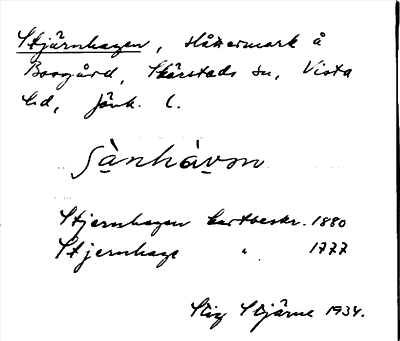 Stjärnhagen, slåttermark å
Boogård, Skärstads sn, Vista
hd, Jönk. l.
Stjernhagen kartbeskr. 1880
Stjernhage " 1777
Stig Stjärne 1934.